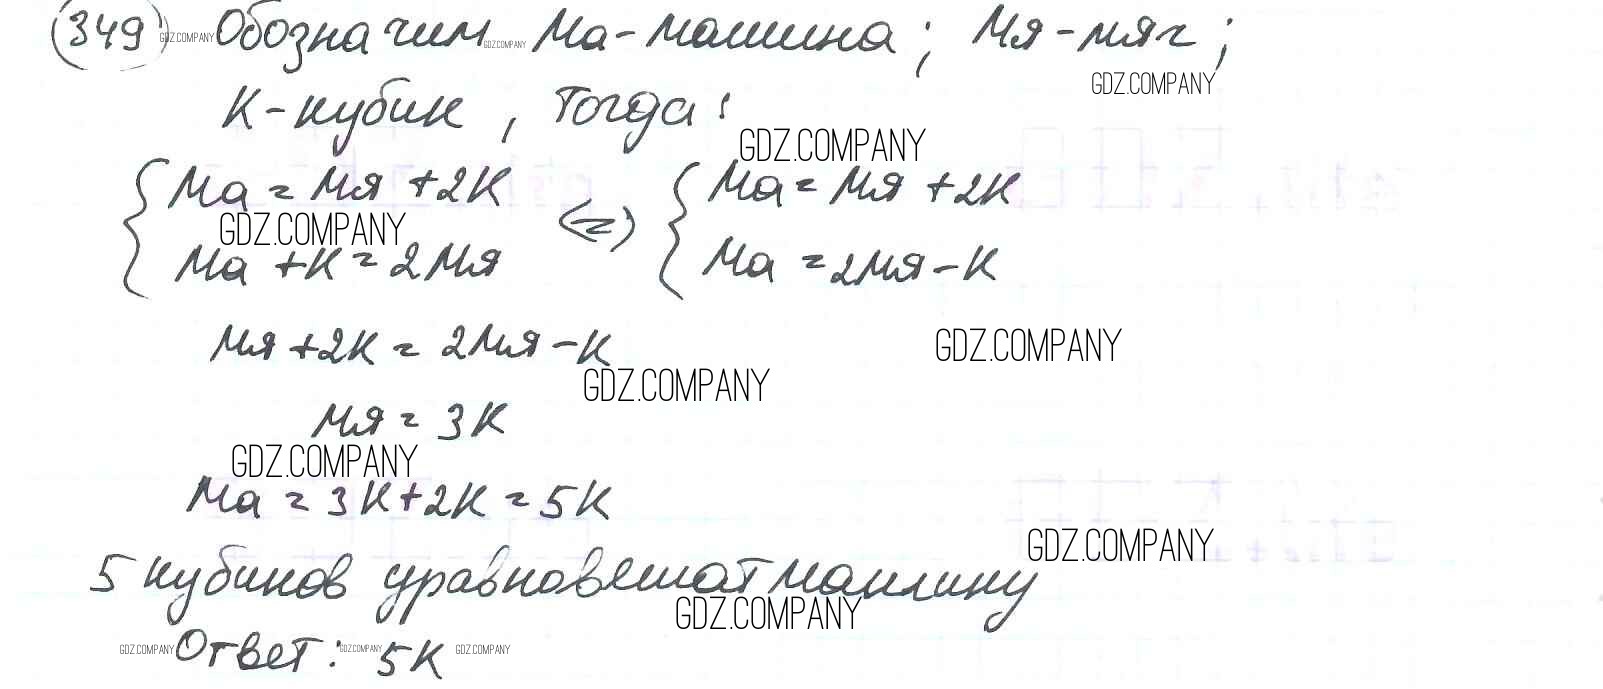 349 GDZ.COMPANY Обозначим GDZ.COMPANY Ма-машина; Мя-мяч;
GDZ.COMPANY
К-кубик, тогда:
GDZ.COMPANY
Ма = Мя + 2К <=> Ма = Мя + 2К
GDZ.COMPANY
Ма + К = 2Мя Ма = 2Мя - К
Мя + 2К = 2Мя - К GDZ.COMPANY
GDZ.COMPANY
Мя = 3К
GDZ.COMPANY
Ма = 3К + 2К = 5К
GDZ.COMPANY
5 кубиков уравновешат машину
GDZ.COMPANY
GDZ.COMPANY Ответ: GDZ.COMPANY 5К GDZ.COMPANY